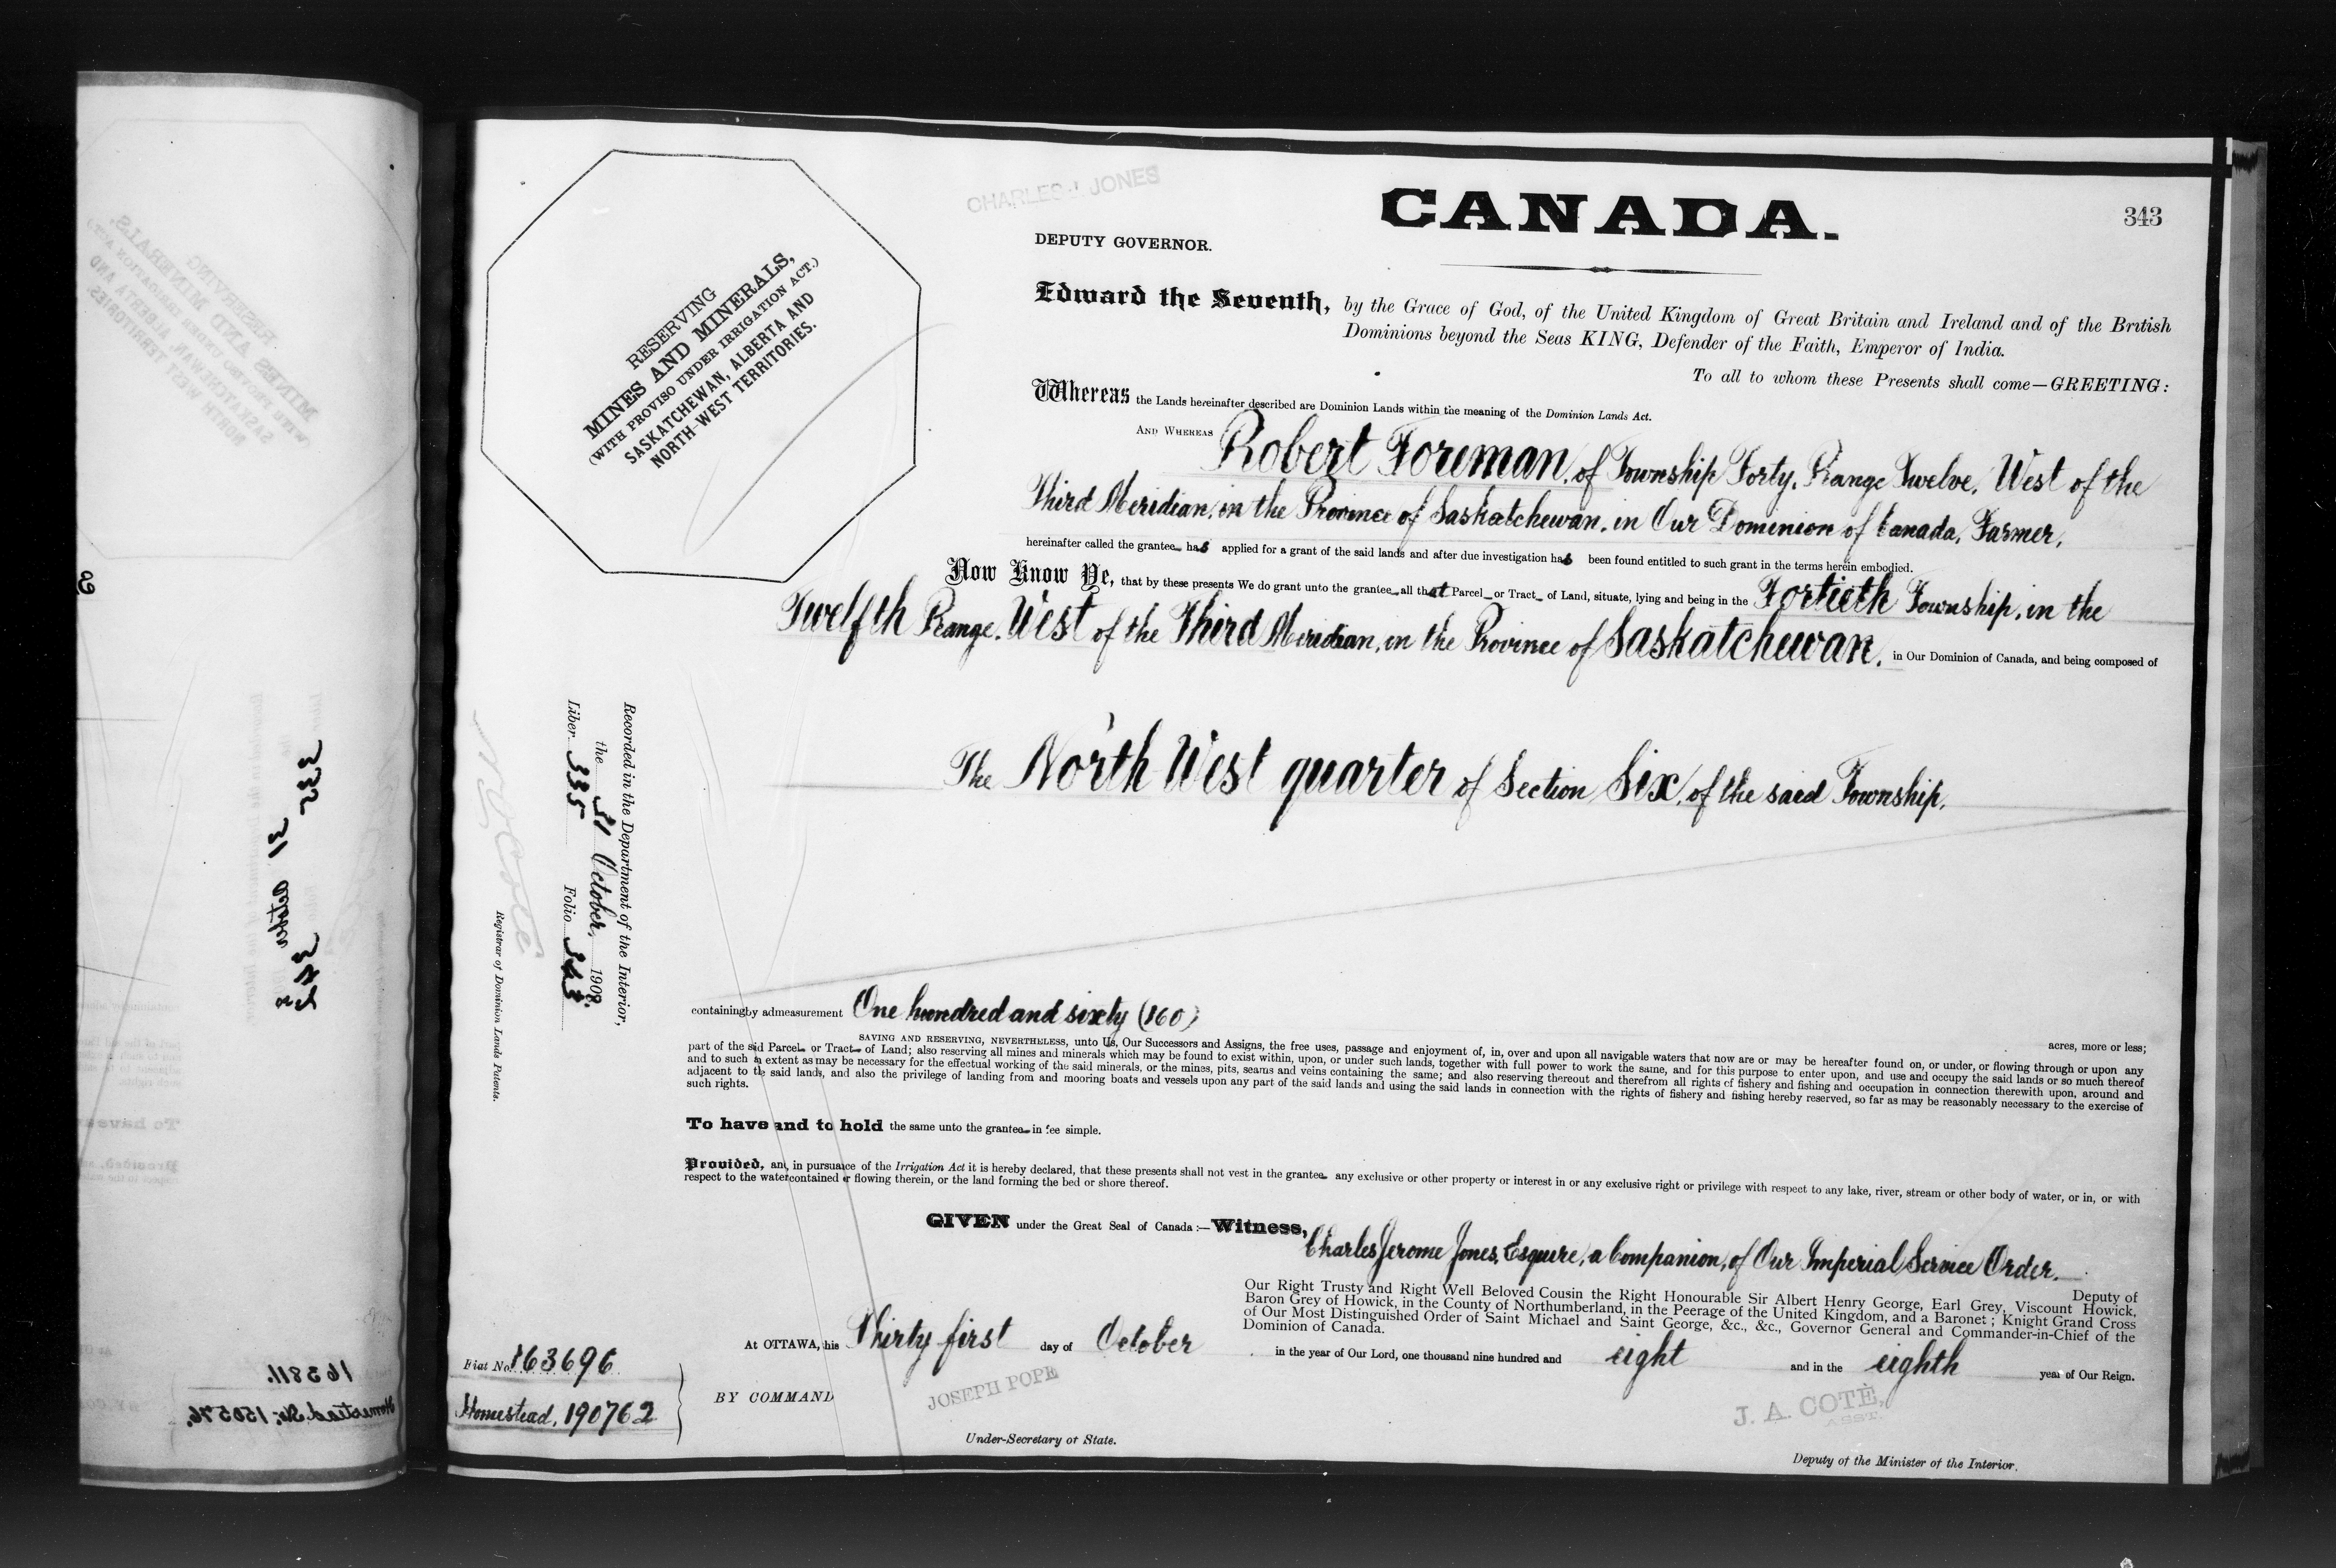 CHARLES J. JONES
CANADA.
343
DEPUTY GOVERNOR.
RESERVING
MINES AND MINERALS,
(WITH PROVISO UNDER IRRIGATION ACT.)
SASKATCHEWAN, ALBERTA AND
NORTH-WEST TERRITORIES.
Edward the Seventh, by the Grace of God, of the United Kingdom of Great Britain and Ireland and of the British
Dominions beyond the Seas KING, Defender of the Faith, Emperor of India.
To all to whom these Presents shall come—GREETING:
Whereas the Lands hereinafter described are Dominion Lands within the meaning of the Dominion Lands Act.
AND WHEREAS Robert Foreman, of Township Forty, Range Twelve, West of the
Third Meridian, in the Province of Saskatchewan, in Our Dominion of Canada, Farmer,
hereinafter called the grantee has applied for a grant of the said lands and after due investigation has been found entitled to such grant in the terms herein embodied.
Now Know Ye, that by these presents We do grant unto the grantee all that Parcel or Tract of Land, situate, lying and being in the Fortieth Township, in the
Twelfth Range, West of the Third Meridian, in the Province of Saskatchewan, in Our Dominion of Canada, and being composed of
The North West quarter of Section Six, of the said Township,
Recorded in the Department of the Interior,
the 31 October, 1908.
Liber 335 Folio 343.
N. O. Coté
Registrar of Dominion Lands Patents.
containing by admeasurement One hundred and sixty (160)
acres, more or less;
SAVING AND RESERVING, NEVERTHELESS, unto Us, Our Successors and Assigns, the free uses, passage and enjoyment of, in, over and upon all navigable waters that now are or may be hereafter found on, or under, or flowing through or upon any
part of the said Parcel or Tract of Land; also reserving all mines and minerals which may be found to exist within, upon, or under such lands, together with full power to work the same, and for this purpose to enter upon, and use and occupy the said lands or so much thereof
and to such an extent as may be necessary for the effectual working of the said minerals, or the mines, pits, seams and veins containing the same; and also reserving thereout and therefrom all rights of fishery and fishing and occupation in connection therewith upon, around and
adjacent to the said lands, and also the privilege of landing from and mooring boats and vessels upon any part of the said lands and using the said lands in connection with the rights of fishery and fishing hereby reserved, so far as may be reasonably necessary to the exercise of
such rights.
To have and to hold the same unto the grantee in fee simple.
Provided, and, in pursuance of the Irrigation Act it is hereby declared, that these presents shall not vest in the grantee any exclusive or other property or interest in or any exclusive right or privilege with respect to any lake, river, stream or other body of water, or in, or with
respect to the water contained or flowing therein, or the land forming the bed or shore thereof.
GIVEN under the Great Seal of Canada:—Witness, Charles Jerome Jones, Esquire, a Companion, of Our Imperial Service Order,
Deputy of
Our Right Trusty and Right Well Beloved Cousin the Right Honourable Sir Albert Henry George, Earl Grey, Viscount Howick,
Baron Grey of Howick, in the County of Northumberland, in the Peerage of the United Kingdom, and a Baronet; Knight Grand Cross
of Our Most Distinguished Order of Saint Michael and Saint George, &c., &c., Governor General and Commander-in-Chief of the
Dominion of Canada.
At OTTAWA, this Thirty first day of October in the year of Our Lord, one thousand nine hundred and eight and in the eighth year of Our Reign.
Fiat No. 163696
Homestead, 190762
BY COMMAND
JOSEPH POPE
Under-Secretary of State.
J. A. COTÉ,
ASST.
Deputy of the Minister of the Interior.